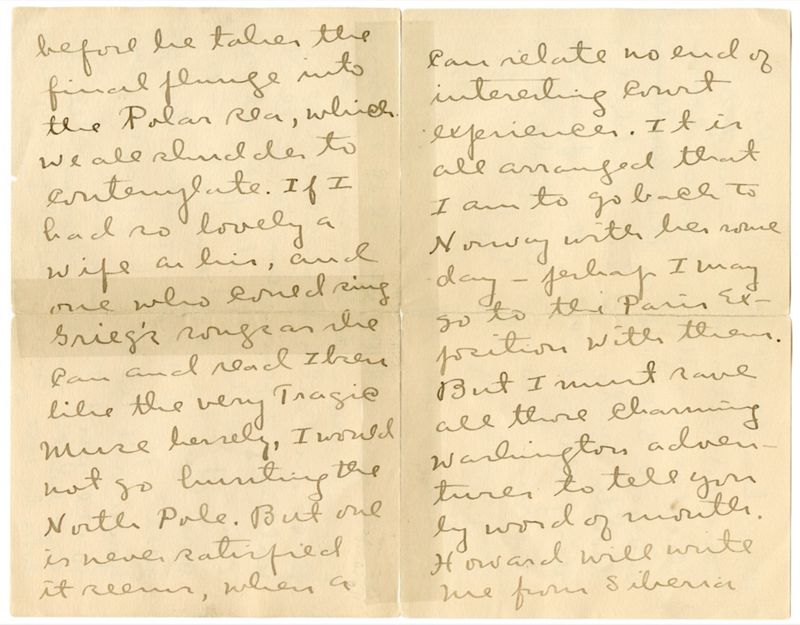 before he takes the
final plunge into
the Polar sea, which
we all shudder to
contemplate. If I
had so lovely a
wife as his, and
one who could sing
Grieg's songs as she
can and read Ibsen
like the very Tragic
Muse herself, I would
not go hunting the
North Pole. But one
is never satisfied
it seems, when a
can relate no end of
interesting court
experiences. It is
all arranged that
I am to go back to
Norway with her some
day – perhaps I may
go to the Paris Ex-
position with them.
But I must save
all those charming
Washington adven-
tures to tell you
by word of mouth.
Howard will write
me from Siberia